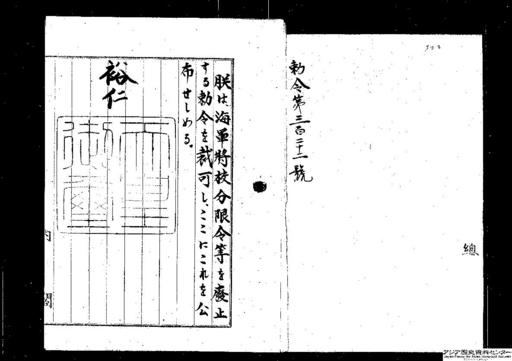 勅令第三百二十二號
總
朕は、海軍将校分限令等を廢止
する勅令を裁可し、ここにこれを公
布せしめる。
裕仁
天皇
御璽
内
閣
アジア歴史資料センター